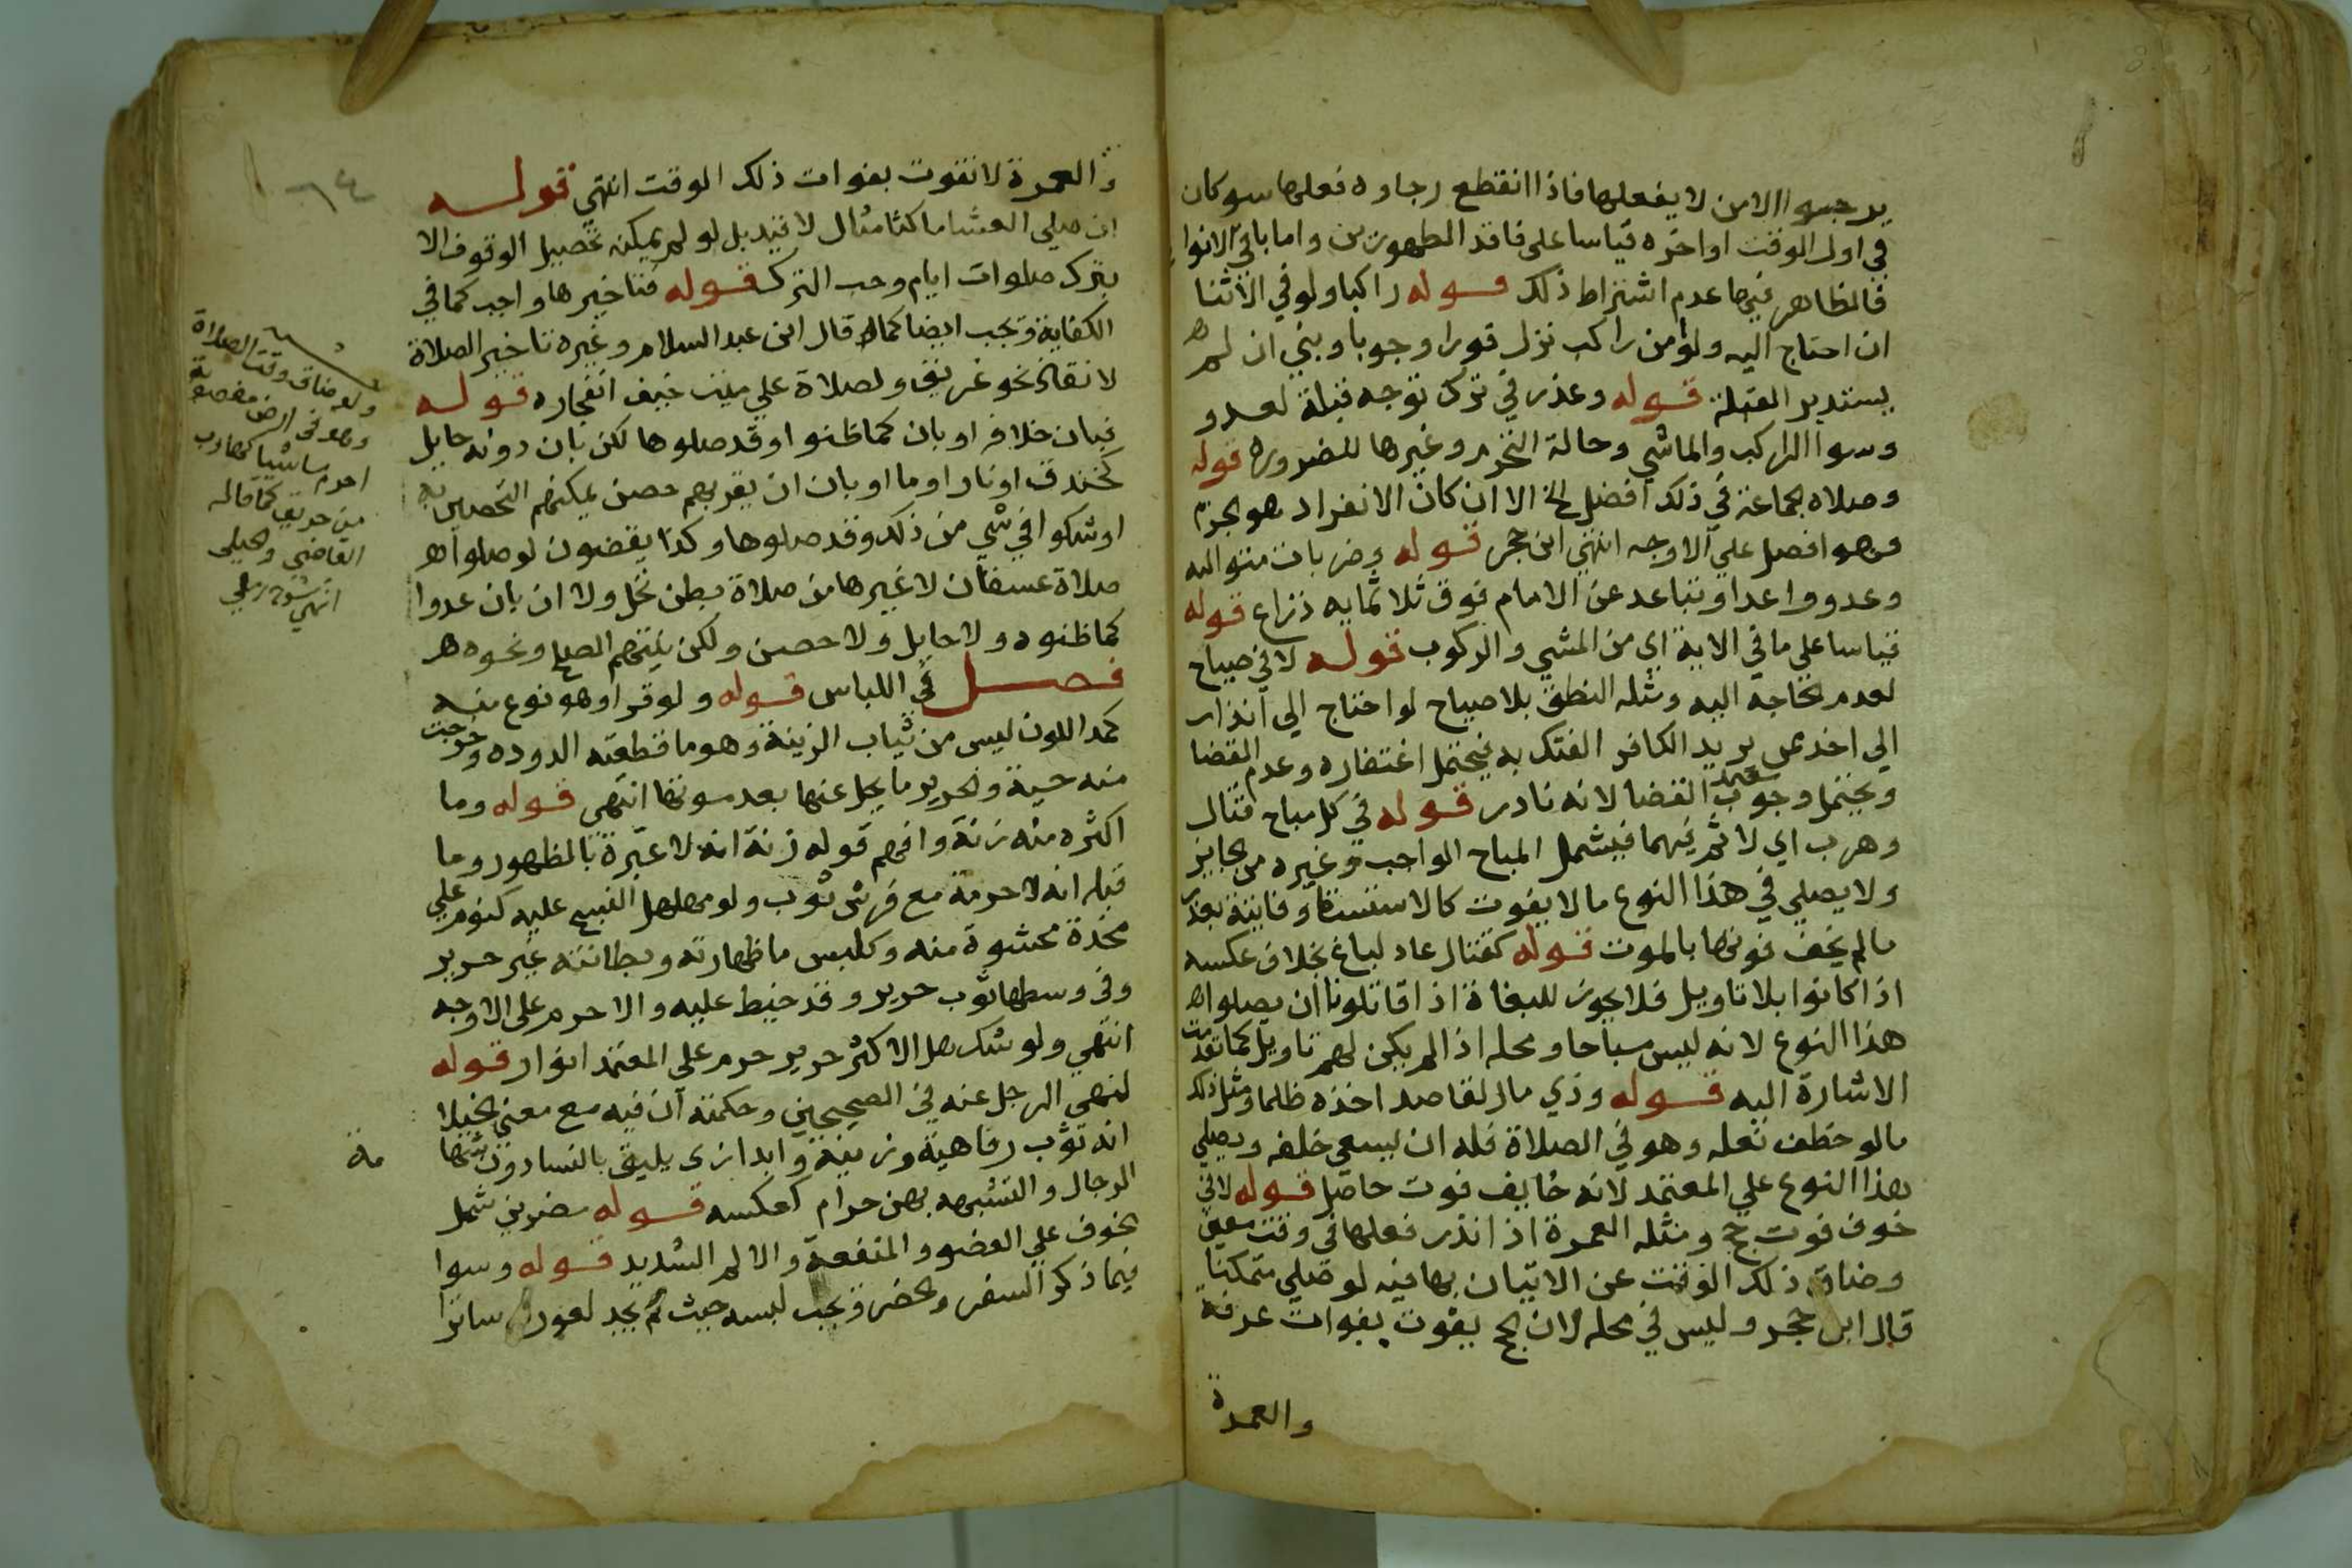 يرجوا الامن لا يفعلها فاذا انقطع رجاوه فعلها سوكان
في اول الوقت او اخره قياسا على فاقد الطهورين واما باقي الانواع
فالظاهر فيها عدم اشتراط ذلك قوله راكبا ولو في الاثنا
ان احتاج اليه ولو امن راكب نزل فورا وجوبا وبني ان لم
يستدبر القبلة قوله وعذر في ترك توجه قبلة لعدو
وسوا الراكب والماشي وحالة التحرم وغيرها للضرورة قوله
وصلاه الجماعة في ذلك افضل الخ الا ان كان الانفراد هو الحزم
فهو افضل علي الاوجه انتهي ابن حجر قوله وضربات متواليه
وعدو واعدا وتباعد عن الامام فوق ثلاثمايه ذراع قوله
قياسا علي ما في الاية اي من المشي والركوب قوله لا في صياح
لعدم الحاجة اليه ومثله النطق بلا صياح لو احتاج الي انذار
الي اخذ من يريد الكافر الفتك به فيحتمل اغتفاره وعدم القضا
ويحتمل وجوب القضا لانه نادر قوله في كل مباح قتال
وهرب اي لا ثم فيهما فيشمل المباح الواجب وغيره من الجايز
ولا يصلي في هذا النوع ما لا يفوت كالاستسقا وفايتة بعذر
ما لم يخف فوتها بالموت قوله كقتال عاد لباغ بخلاف عكسه
اذا كانوا بلا تاويل فلا يجوز للبغاة اذا قاتلونا ان يصلوا
هذا النوع لانه ليس مباحا ومحله اذا لم يكن لهم تاويل كما تقدمت
الاشارة اليه قوله وذي مال لقاصد اخذه ظلما ومثل ذلك
مالو خطف نعله وهو في الصلاة فله ان يسعي خلفه ويصلي
هذا النوع علي المعتمد لانه خايف فوت حاصل قوله لا في
خوف فوت حج ومثله العمرة اذا نذر فعلها في وقت معين
وضاق ذلك الوقت عن الاتيان بها فيه لو صلي متمكنا
قال ابن حجر وليس في محله لان الحج يفوت بفوات عرفة
والعمرة
والعمرة لا تفوت بفوات ذلك الوقت انتهي قوله
ان صلي العشا ماكثا مثال لا قيد بل لو لم يمكنه تحصيل الوقوف الا
بترك صلوات ايام وجب الترك قوله فتاخيرها واجب كما في
الكفاية ويجب ايضا كما قال ابن عبد السلام وغيره تاخير الصلاة
لانقاذ نحو غريق ولصلاة علي ميت خيف انفجاره قوله
فبان خلافه او بان كما ظنوا وقد صلوها لكن بان دونه حايل
كخندق او نار او ما او بان ان بقربهم حصن يمكنهم التحصين به
او شكوا في شي من ذلك وقد صلوها وكذا يقضون لو صلوا
صلاة عسفان لا غيرها من صلاة بطن نخل ولا ان بان عدوا
كما ظنوه ولا حايل ولا حصن ولكن نيتهم الصلح ونحوه
فصل في اللباس قوله ولو قزا وهو نوع منه
كمد اللون ليس من ثياب الزينة وهو ما قطعته الدوده وخرجت
منه حية والحرير ما يحل عنها بعد موتها انتهي قوله وما
اكثره منه زنة وافهم قوله زنة انه لا عبرة بالظهور وما
قبله انه لا حرمة مع فرش ثوب ولو مهلهل النسج عليه كنوم علي
مخدة محشوة منه وكلبس ما ظهارته وبطانته غير حرير
وفي وسطها ثوب حرير وقد خيط عليه والا حرم علي الاوجه
انتهي ولو شك هل الاكثر حرير حرم علي المعتمد انوار قوله
لنهي الرجل عنه في الصحيحين وحكمته ان فيه مع معني الخيلا
انه ثوب رفاهية وزينة وابدا زي يليق بالنسا دون شهامة
الرجال والتشبه بهن حرام كعكسه قوله مضرين شمل
الخوف علي العضو والمنفعة والالم الشديد قوله وسوا
فيما ذكر السفر والحضر ويجب لبسه حيث لم يجد لعورته ساترا
٦٤
ولو ضاق وقت الصلاة
وهو في ارض مغصوبة
احرم ماشيا كهارب
من حريق كما قاله
القاضي والجيلي
انتهي شرح رملي